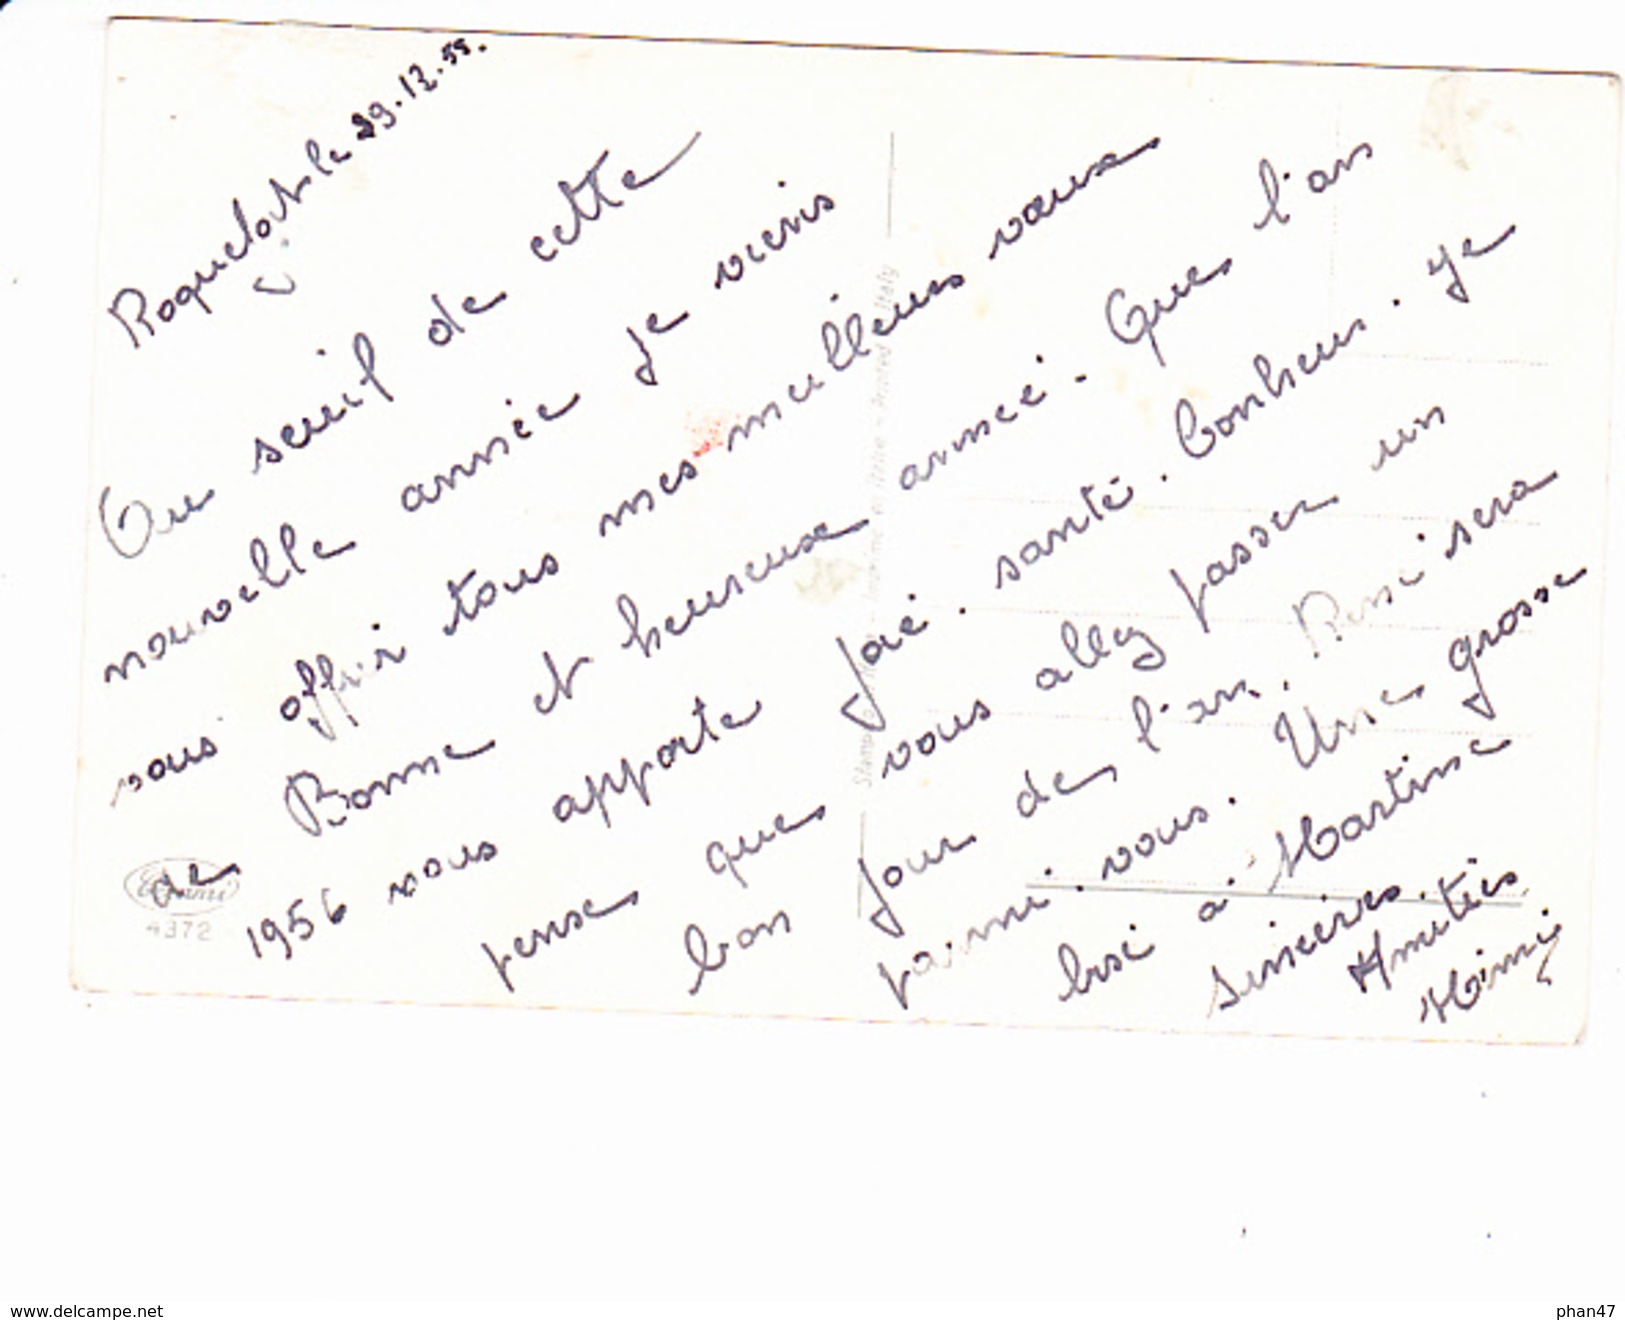 Roquelot le 29.12.55.
Au seuil de cette
nouvelle année je viens
vous offrir tous mes meilleurs vœux
de Bonne et heureuse année. Que l'an
1956 vous apporte joie. santé. bonheur. Je
pense que vous allez passer un
bon jour de l'an. René sera
parmi vous. Une grosse
bise à Martine
Sincères
Amitiés
Mimi
4372
Printed in Italy
www.delcampe.net
phan47